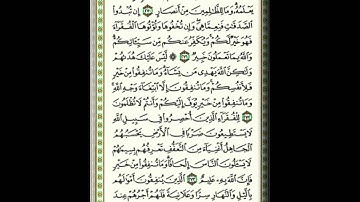 يَعْلَمُهُۥ وَمَا لِلظَّٰلِمِينَ مِنْ أَنصَارٍ ﴿٢٧٠﴾ إِن تُبْدُوا۟
ٱلصَّدَقَٰتِ فَنِعِمَّا هِىَ وَإِن تُخْفُوهَا وَتُؤْتُوهَا ٱلْفُقَرَآءَ
فَهُوَ خَيْرٌ لَّكُمْ وَيُكَفِّرُ عَنكُم مِّن سَيِّـَٔاتِكُمْ
وَٱللَّهُ بِمَا تَعْمَلُونَ خَبِيرٌ ﴿٢٧١﴾ لَّيْسَ عَلَيْكَ هُدَىٰهُمْ
وَلَٰكِنَّ ٱللَّهَ يَهْدِى مَن يَشَآءُ وَمَا تُنفِقُوا۟ مِنْ خَيْرٍ
فَلِأَنفُسِكُمْ وَمَا تُنفِقُونَ إِلَّا ٱبْتِغَآءَ وَجْهِ ٱللَّهِ
وَمَا تُنفِقُوا۟ مِنْ خَيْرٍ يُوَفَّ إِلَيْكُمْ وَأَنتُمْ لَا تُظْلَمُونَ
﴿٢٧٢﴾ لِلْفُقَرَآءِ ٱلَّذِينَ أُحْصِرُوا۟ فِى سَبِيلِ ٱللَّهِ
لَا يَسْتَطِيعُونَ ضَرْبًا فِى ٱلْأَرْضِ يَحْسَبُهُمُ
ٱلْجَاهِلُ أَغْنِيَآءَ مِنَ ٱلتَّعَفُّفِ تَعْرِفُهُم بِسِيمَٰهُمْ
لَا يَسْـَٔلُونَ ٱلنَّاسَ إِلْحَافًا وَمَا تُنفِقُوا۟ مِنْ خَيْرٍ
فَإِنَّ ٱللَّهَ بِهِۦ عَلِيمٌ ﴿٢٧٣﴾ ٱلَّذِينَ يُنفِقُونَ أَمْوَٰلَهُم
بِٱلَّيْلِ وَٱلنَّهَارِ سِرًّا وَعَلَانِيَةً فَلَهُمْ أَجْرُهُمْ عِندَ